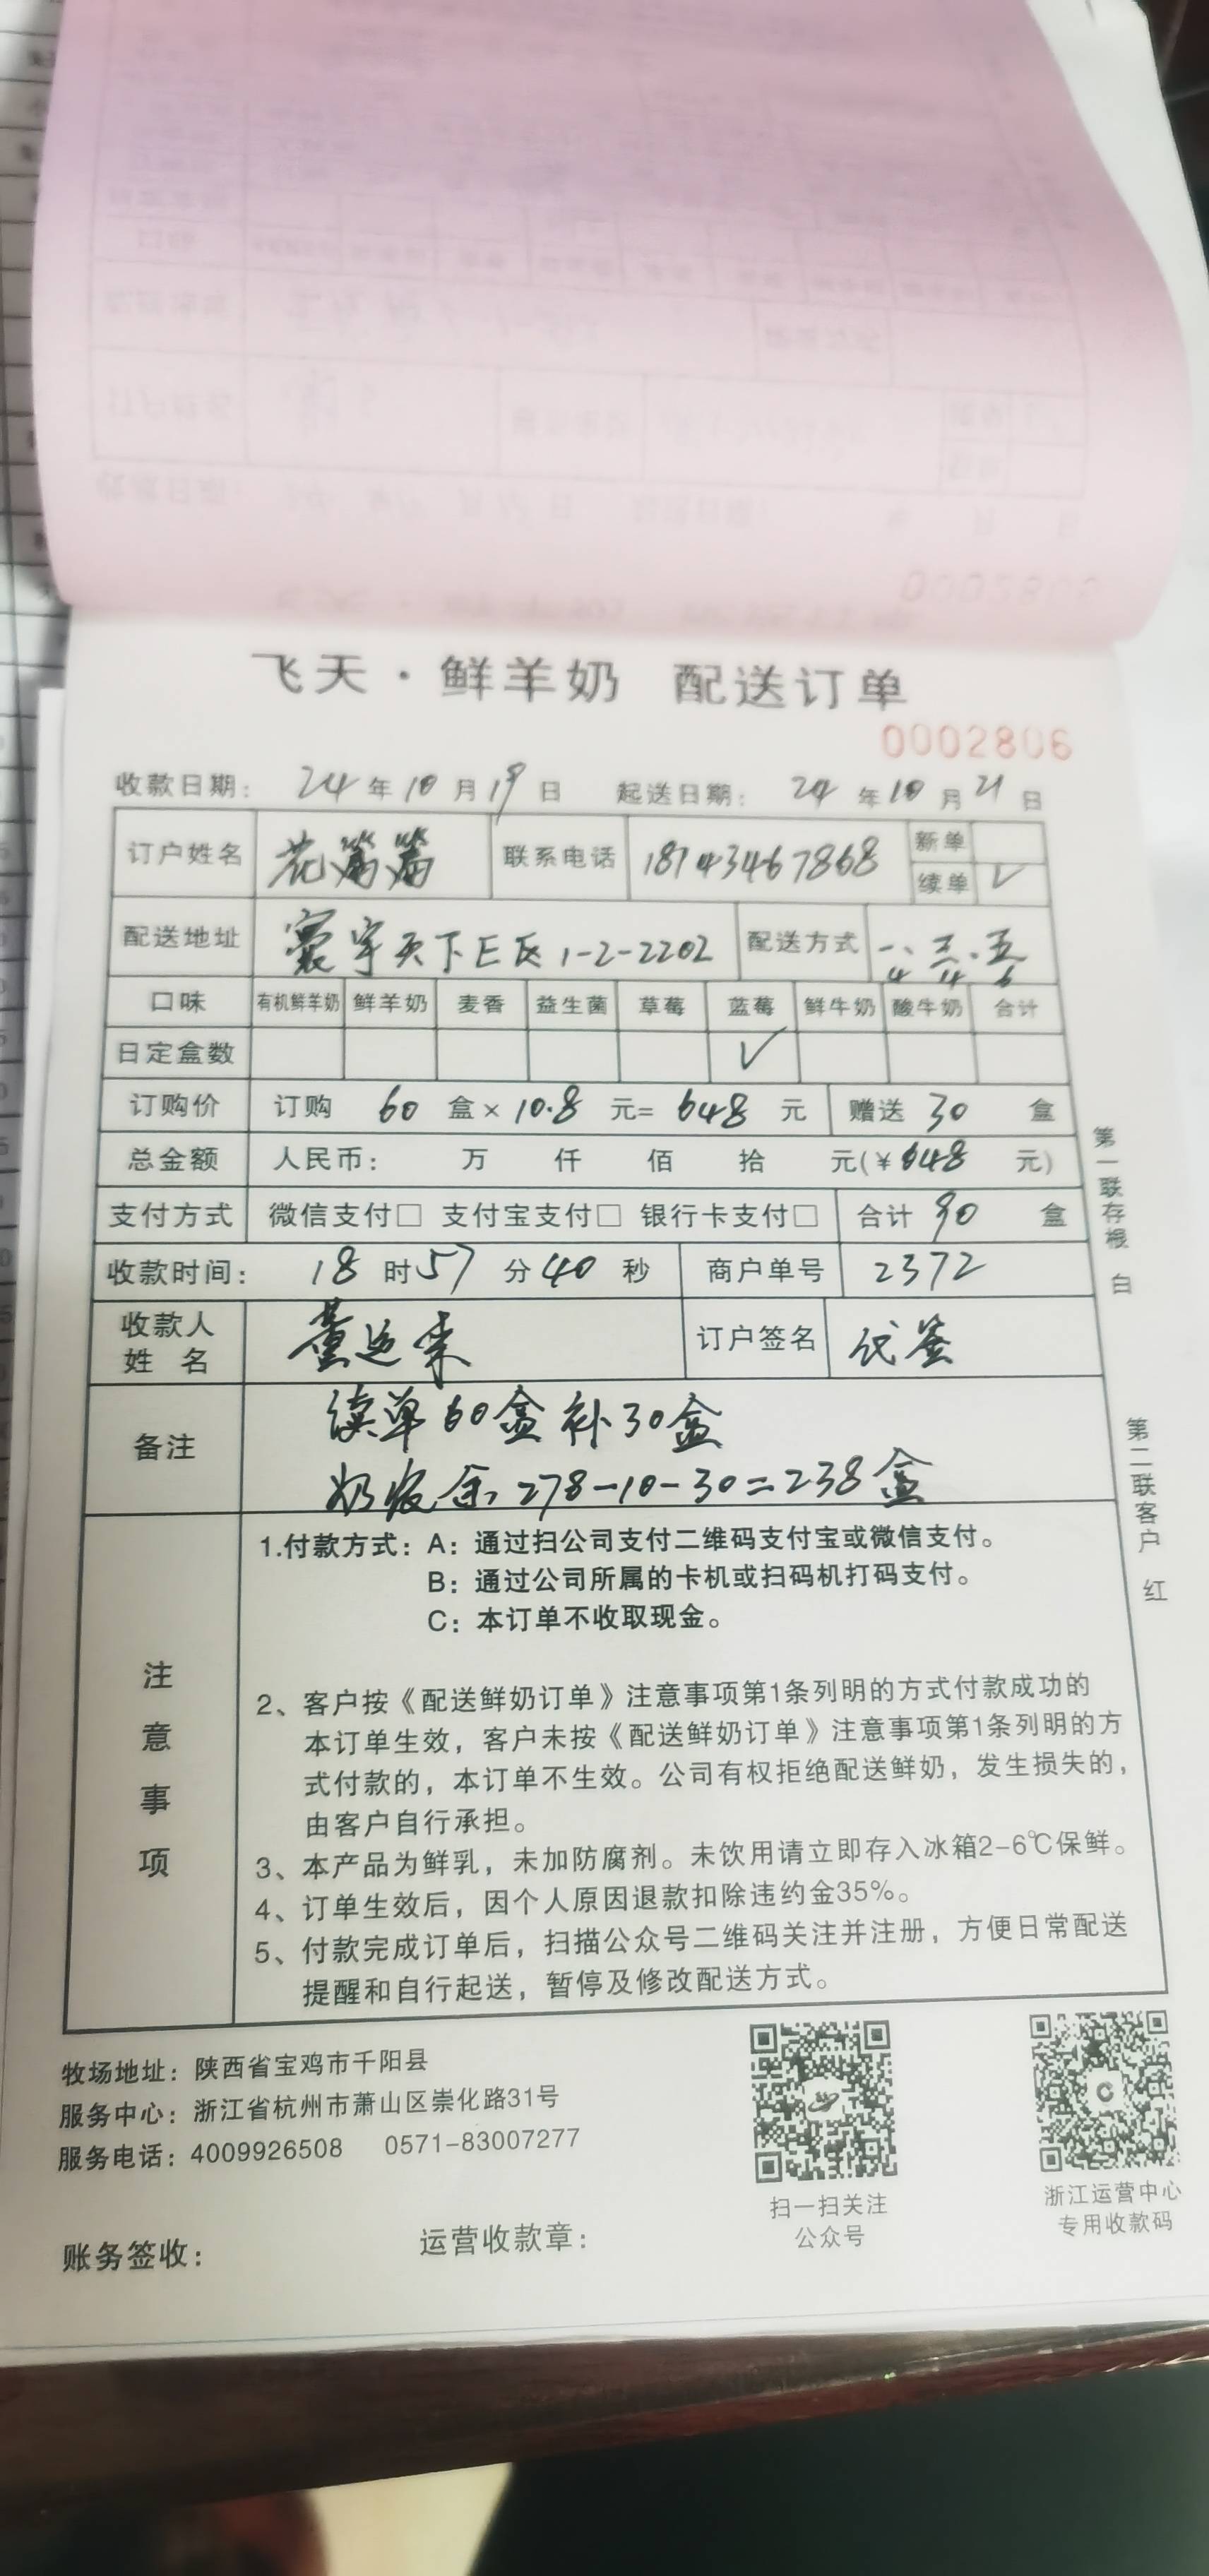 飞天·鲜羊奶 配送订单
0002806
收款日期: 24 年 10 月 19 日 起送日期: 24 年 10 月 21 日
订户姓名 花篱篱 联系电话 18143467868 新单
续单 √
配送地址 寰宇天下E区1-2-2202 配送方式 一、三、五
4 4 6
口味 有机鲜羊奶 鲜羊奶 麦香 益生菌 草莓 蓝莓 鲜牛奶 酸牛奶 合计
日定盒数 √
订购价 订购 60 盒× 10.8 元= 648 元 赠送 30 盒
总金额 人民币: 万 仟 佰 拾 元(¥648 元)
支付方式 微信支付□ 支付宝支付□ 银行卡支付□ 合计 90 盒
收款时间: 18 时 57 分 40 秒 商户单号 2372
收款人
姓 名 董运来 订户签名 代签
备注 续单60盒补30盒
奶收余278-10-30=238盒
注意事项
1.付款方式: A: 通过扫公司支付二维码支付宝或微信支付。
B: 通过公司所属的卡机或扫码机打码支付。
C: 本订单不收取现金。
2、客户按《配送鲜奶订单》注意事项第1条列明的方式付款成功的
本订单生效，客户未按《配送鲜奶订单》注意事项第1条列明的方
式付款的，本订单不生效。公司有权拒绝配送鲜奶，发生损失的，
由客户自行承担。
3、本产品为鲜乳，未加防腐剂。未饮用请立即存入冰箱2-6℃保鲜。
4、订单生效后，因个人原因退款扣除违约金35%。
5、付款完成订单后，扫描公众号二维码关注并注册，方便日常配送
提醒和自行起送，暂停及修改配送方式。
第一联存根 白
第二联客户 红
牧场地址: 陕西省宝鸡市千阳县
服务中心: 浙江省杭州市萧山区崇化路31号
服务电话: 4009926508 0571-83007277
扫一扫关注
公众号
浙江运营中心
专用收款码
账务签收: 运营收款章: